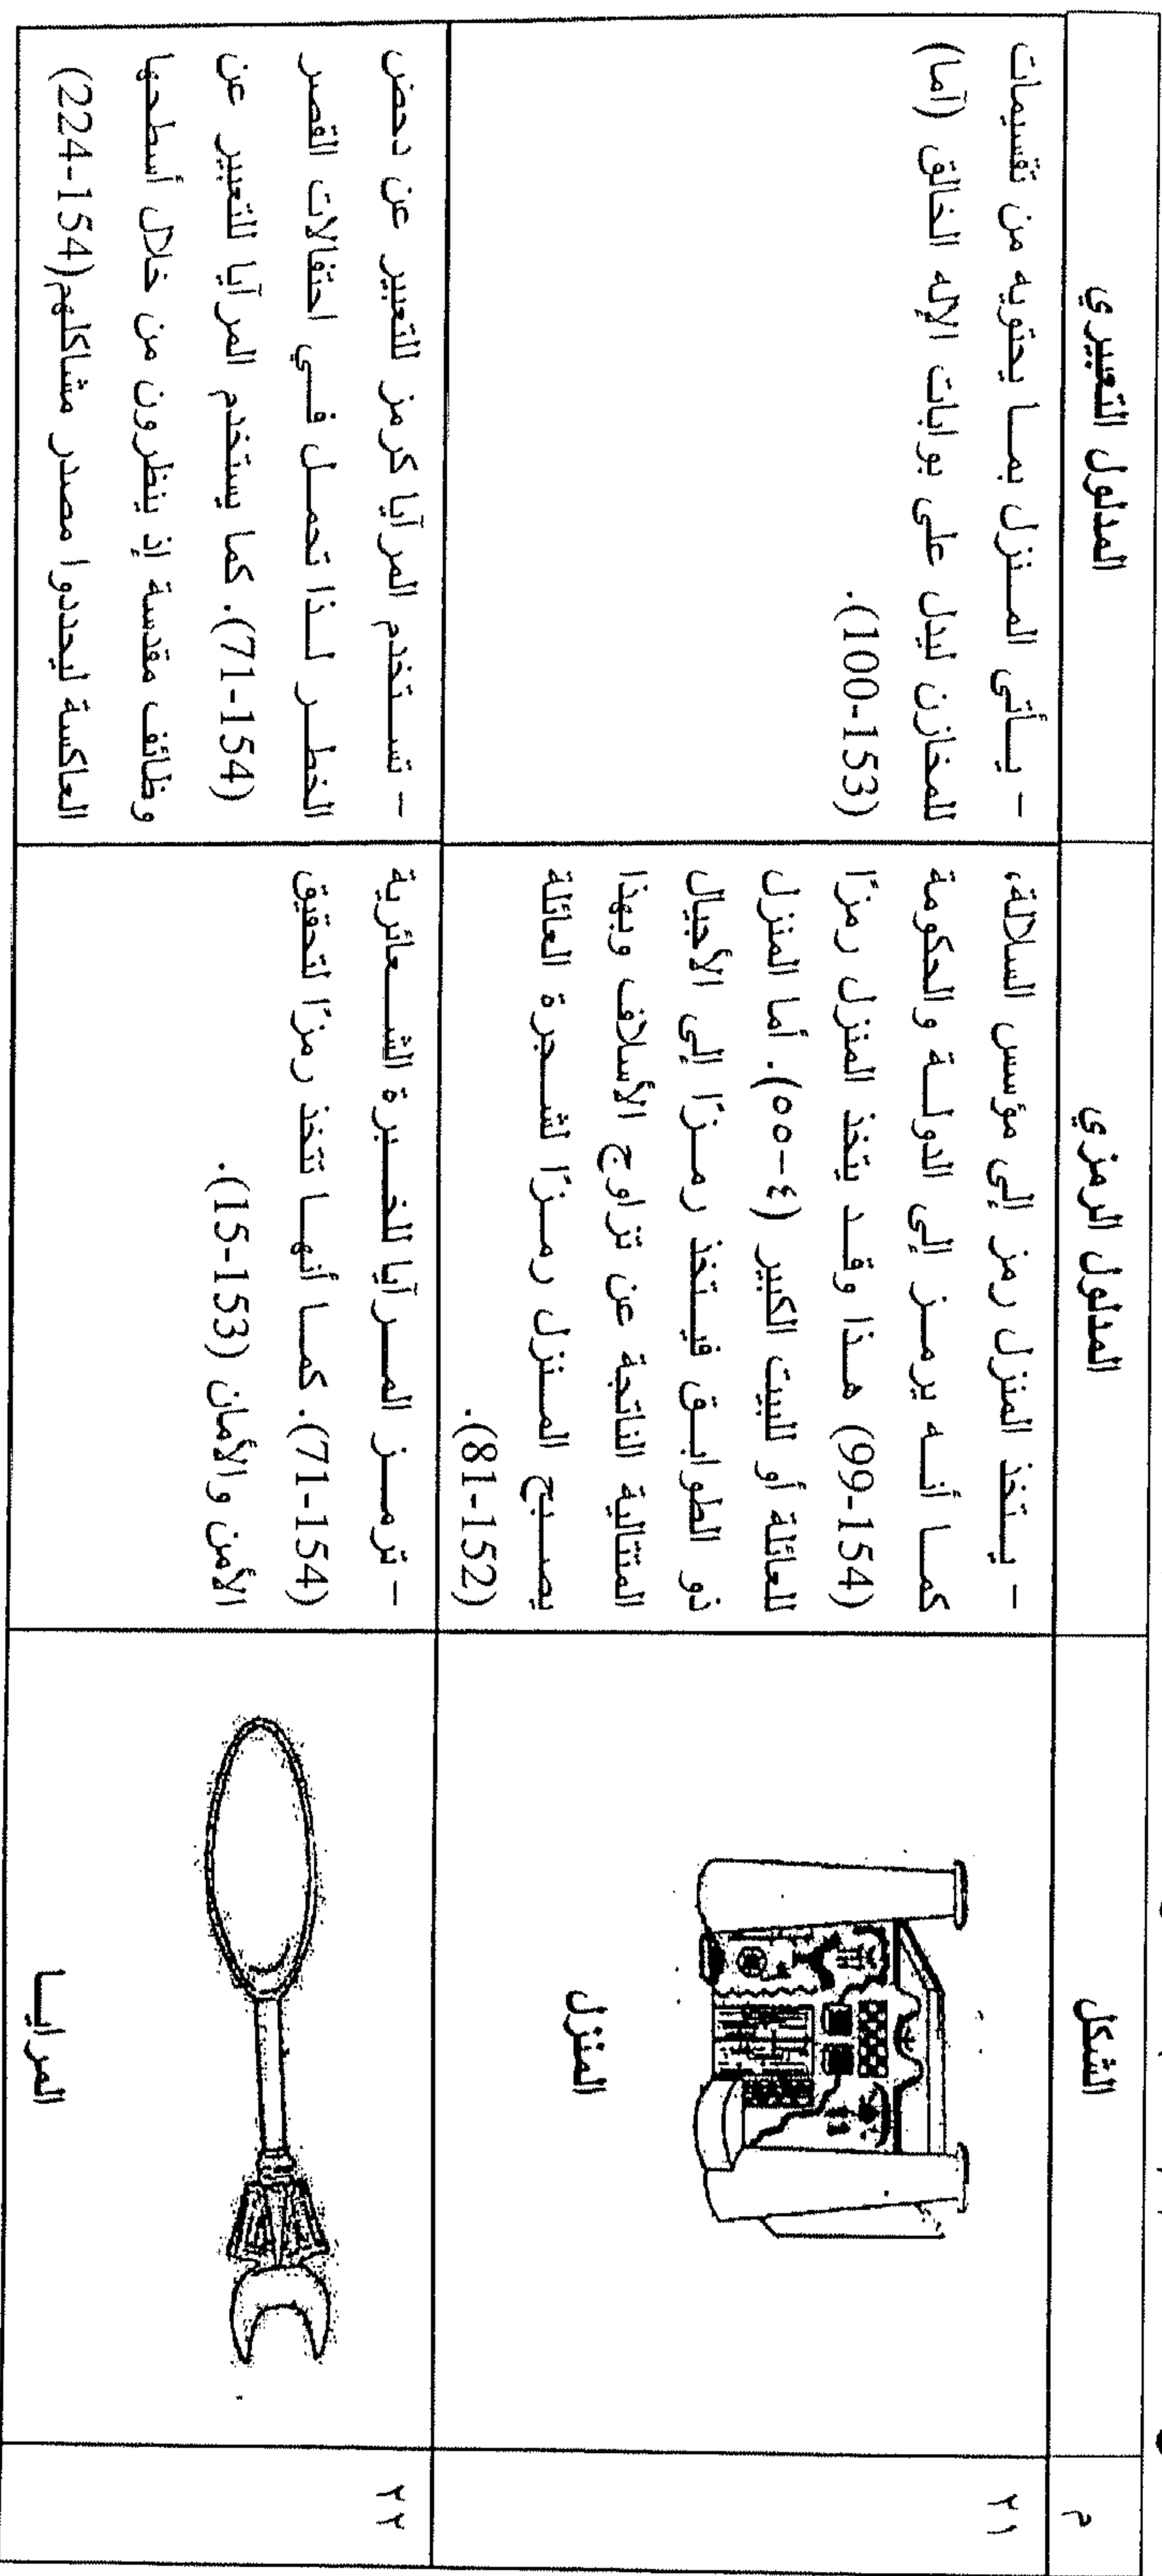 م
الشكل
المدلول الرمزي
المدلول التعبيري
٢١
المنزل
- يتخذ المنزل رمز إلى مؤسس السلالة،
كما أنه يرمز إلى الدولة والحكومة
(99-154) هذا وقد يتخذ المنزل رمزًا
للعائلة أو للبيت الكبير (٤-٥٥). أما المنزل
ذو الطوابق فيتخذ رمزًا إلى الأجيال
المتتالية الناتجة عن تزاوج الأسلاف وبهذا
يصبح المنزل رمزًا لشجرة العائلة
(81-152).
- يأتي المنزل بما يحتويه من تقسيمات
للمخازن ليدل على بوابات الإله الخالق (أما)
(100-153).
٢٢
المرايا
- ترمز المرايا للخبرة الشعائرية
(71-154). كما أنها تتخذ رمزًا لتحقيق
الأمن والأمان (15-153).
- تستخدم المرايا كرمز للتعبير عن دحض
الخطر لذا تحمل في احتفالات القصر
(71-154). كما يستخدم المرايا للتعبير عن
وظائف مقدسة إذ ينظرون من خلال أسطحها
العاكسة ليحددوا مصدر مشاكلهم(224-154)